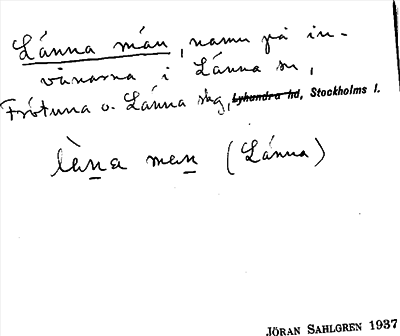 Lánna mán, namn på in-
vånarna i Lánna sn,
Frötuna o. Lánna skg, Lyhundra hd, Stockholms l.
làna man (Lánna)
JÖRAN SAHLGREN 1937